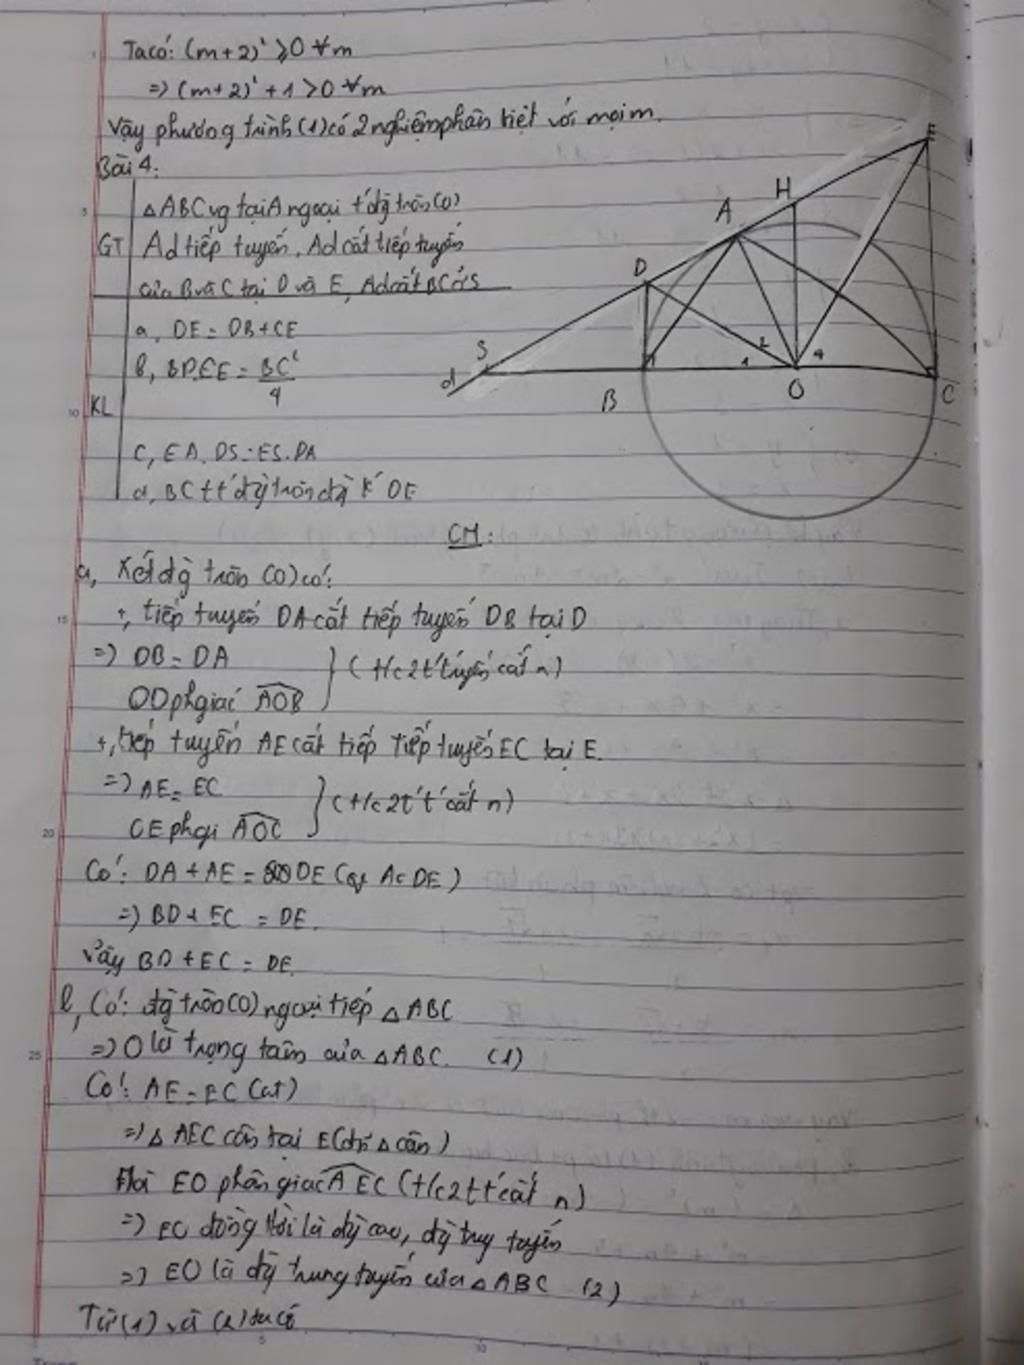 Ta có: (m+2)² ≥ 0 ∀m
=) (m+2)² + 1 > 0 ∀m
Vậy phương trình (1) có 2 nghiệm phân biệt với mọi m.
Bài 4:
△ABC vg tại A ngoại t' đg tròn (O)
GT Ad tiếp tuyến, Ad cắt tiếp tuyến
của B và C tại D và E, Ad cắt BC ở S
a, DE = DB + CE
b, BD.CE = BC²/4
KL
c, EA.DS = ES.DA
d, BC tt' đg tròn đg k' DE
E
H
A
D
S
d
1
1
2
4
B
O
C
CM:
a, Xét đg tròn (O) có:
+, tiếp tuyến DA cắt tiếp tuyến DB tại D
=) DB = DA
OD phgiác AOB
} (t/c 2 t' tuyến cắt n)
+, tiếp tuyến AE cắt tiếp tiếp tuyến EC tại E.
=) AE = EC
OE phgi AOC
} (t/c 2 t' t' cắt n)
Có: DA + AE = DE (A ∈ DE)
=) BD + EC = DE.
Vậy BD + EC = DE
b, Có: đg tròn (O) ngoại tiếp △ABC
=) O là trọng tâm của △ABC. (1)
Có: AE = EC (cmt)
=) △AEC cân tại E (đn △ cân)
Mà EO phân giác AEC (t/c 2 tt' cắt n)
=) EO đồng thời là đg cao, đg truy tuyến
=) EO là đg trung tuyến của △ABC (2)
Từ (1) và (2) ta có